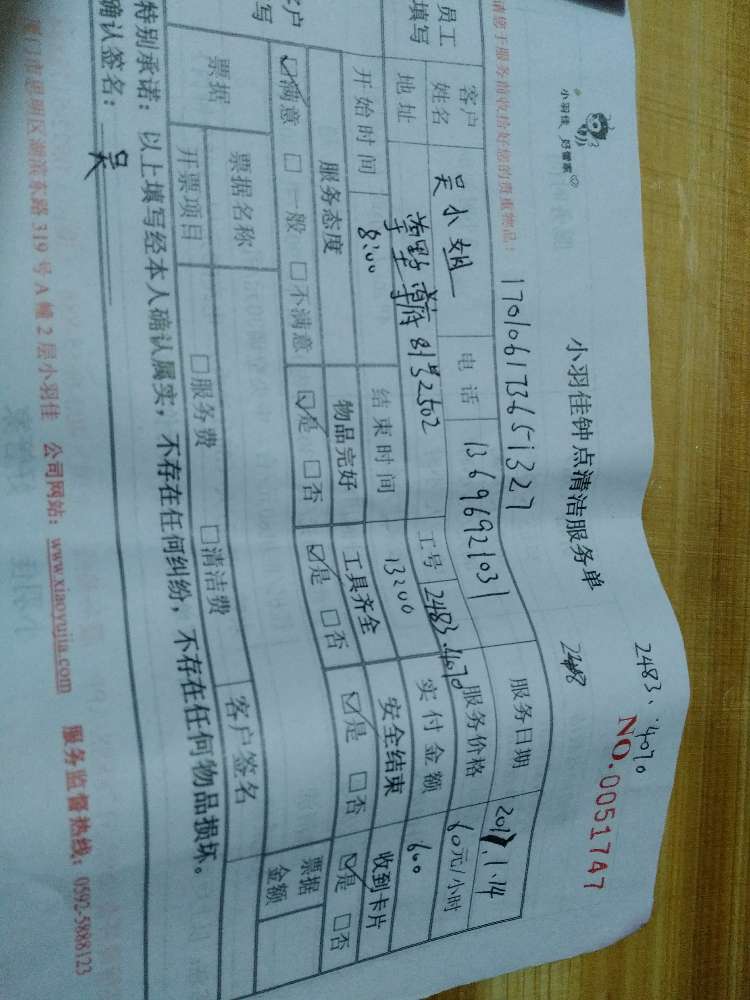 小羽佳 好管家
小羽佳钟点清洁服务单
2483、4070
NO.0051747
请您于服务前收拾好您的贵重物品:
170106173651327
员工填写
客户姓名 吴小姐 电话 13696921031 服务日期 2017.1.14
地址 81号2502 工号 2483.4070 服务价格 60元/小时
开始时间 8:00 结束时间 13:00 实付金额 600
客户填写
服务态度 物品完好 工具齐全 安全结束 收到卡片
☑满意 □一般 □不满意 ☑是 □否 ☑是 □否 ☑是 □否 ☑是 □否
票据 票据名称 客户签名 票据金额
开票项目 □服务费 □清洁费
特别承诺:以上填写经本人确认属实,不存在任何纠纷,不存在任何物品损坏。
确认签名: 吴
厦门市思明区湖滨东路319号A幢2层小羽佳 公司网站:www.xiaoyujia.com 服务监督热线:0592-5888123